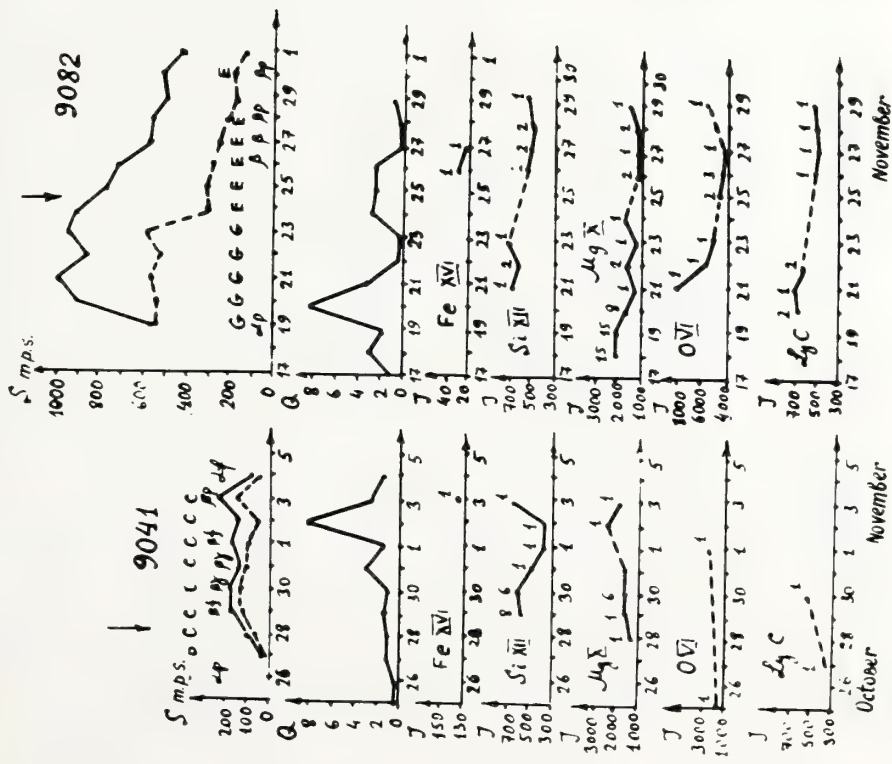 9041
S m.p.s.
200
100
0
αp βγ βγ βf βp αp
26 28 30 1 3 5
Q
8
6
4
2
0
26 28 30 1 3 5
J
150
130
Fe XVI
1
26 28 30 1 3 5
J
700
500
300
Si XII
8 6 1 1 1 1
26 28 30 1 3 5
J
3000
2000
1000
Mg X
1 1 6 1 1
26 28 30 1 3 5
J
3000
1000
O VI
1 1
26 28 30 1 3 5
J
500
300
Ly C
1
28 30 1 3 5
October November
9082
S m.p.s.
1000
800
600
400
200
0
G G G G G E E E E E E E
αp β β βp βp
17 19 21 23 25 27 29 1
Q
8
6
4
2
0
17 19 21 23 25 27 29 1
J
40
20
Fe XVI
1 1
17 19 21 23 25 27 29 1
J
700
500
300
Si XII
1 2 1 2 2 1
17 19 21 23 25 27 29 30
J
3000
2000
1000
Mg X
15 15 8 1 2 1 1 1 2 1
17 19 21 23 25 27 29 30
J
8000
6000
4000
O VI
1 1 1 2 3 1 1
17 19 21 23 25 27 29
J
700
500
300
Ly C
2 1 2 1 1 1 1
17 19 21 23 25 27 29
November